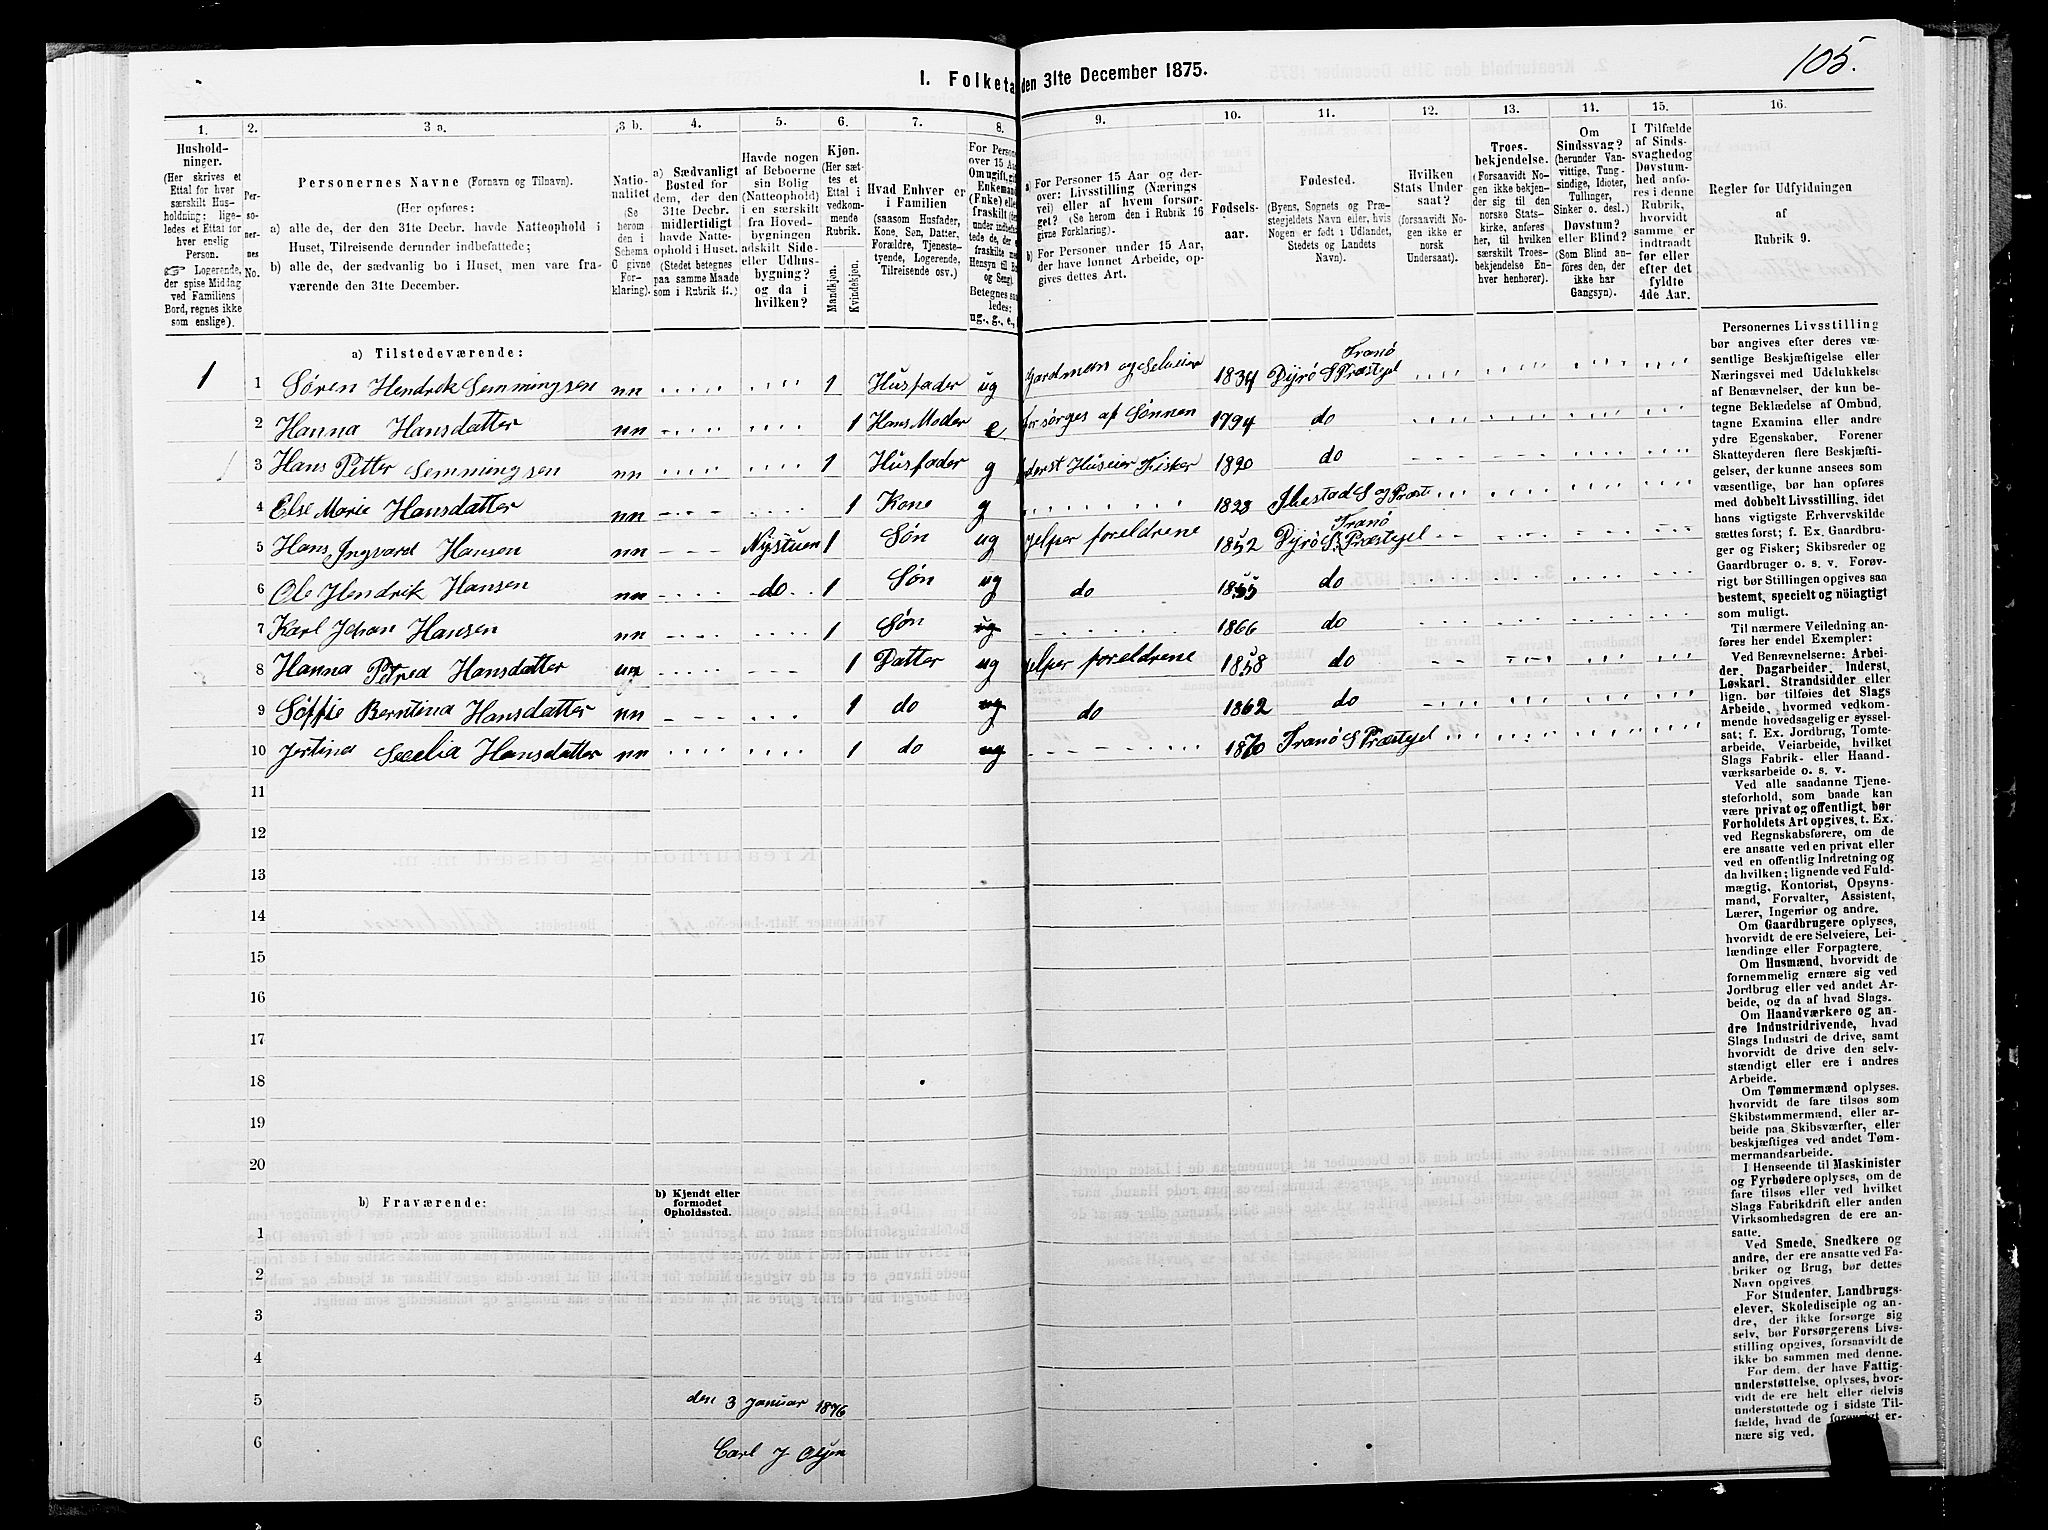 105.
I. Folketa den 31te December 1875.
1. 2. 3 a. 3 b. 4. 5. 6. 7. 8. 9. 10. 11. 12. 13. 14. 15. 16.
Hushold-
ninger.
(Her skrives et
Ettal for hver
særskilt Hus-
holdning; lige-
ledes et Ettal for
hver enslig
Person.
☞ Logerende,
der spise Middag
ved Familiens
Bord, regnes ikke
som enslige).
Per-
so-
ner-
nes
No.
Personernes Navne (Fornavn og Tilnavn).
(Her opføres:
a) alle de, der den 31te Decbr. havde Natteophold i
Huset, Tilreisende derunder indbefattede;
b) alle de, der sædvanlig bo i Huset, men vare fra-
værende den 31te December.
Natio-
nalitet
(Se
herom
den i
Schema
C givne
For-
klaring).
a) Sædvanligt
Bosted for
dem, der den
31te Decbr.
midlertidigt
havde Natte-
ophold i Huset.
(Stedet betegnes
paa samme Maade
som i Rubrik 11.)
Havde nogen
af Beboerne
sin Bolig
(Natteophold)
i en særskilt
fra Hoved-
bygningen
adskilt Side-
eller Udhus-
bygning?
og da i
hvilken?
Kjøn.
(Her sæt-
tes et
Ettal i
vedkom-
mende
Rubrik.
Mandkjøn.
Kvindekjøn.
Hvad Enhver er
i Familien
(saasom Husfader,
Kone, Søn, Datter,
Forældre, Tjeneste-
tyende, Logerende,
Tilreisende osv.).
For Persone
over 15 Aa
Om ugift, gif
Enkemand
(Enke) elle
fraskilt
Betegnes saa
ledes:
ug., g., e.,
a) For Personer 15 Aar og der-
over: Livsstilling (Nærings
vei) eller af hvem forsør-
get? (Se herom den i Rubrik 16
givne Forklaring).
b) For Personer under 15 Aar,
der have lønnet Arbeide, op-
gives dettes Art.
Fødsels-
aar.
Fødested.
(Byens, Sognets og Præ-
stegjeldets Navn eller, hvis
Nogen er født i Udlandet,
Stedets og Landets
Navn).
Hvilken
Stats Under-
saat?
(forsaavidt No-
gen ikke er
norsk
Undersaat).
Troes-
bekjendelse.
(Forsaavidt No-
gen ikke bekjen-
der sig til den
norske Stats-
kirke, anføres
her, til hvilken
særskilt Troes-
bekjendelse En-
hver henhører).
Om
Sindssvag?
(herunder Van-
vittige, Tung-
sindige, Idioter,
Tullinger,
Sinker o. desl.)
Døvstum?
eller Blind?
(Som Blind an-
føres den, der
ikke har
Gangsyn).
I Tilfælde
af Sinds-
svaghed og
Døvstum-
hed anfø-
res i denne
Rubrik,
hvorvidt
samme er
indtraadt
før eller
efter det
fyldte
4de Aar.
Regler for Udfyldningen
af
Rubrik 9.
a) Tilstedeværende:
1 1 Søren Hendrik Semmingsen nn 1 Husfader ug Gardman og Seleier 1834 Dyrö S Tranö Præstgel
2 Hanna Hansdatter nn 1 Hans Moder e forsörges af Sönnen 1794 do
3 Hans Petter Semmingsen nn 1 Husfader g Inderst Huseier Fisker 1820 do
4 Else Marie Hansdatter nn 1 Kone g 1823 Ibestad S og Præste
5 Hans Ingvard Hansen nn Nystuen 1 Søn ug hjelper foreldrene 1852 Dyrö S Tranö Præstegel
6 Ole Hendrik Hansen nn do 1 Søn ug do 1855 do
7 Karl Johan Hansen nn 1 Søn ug 1866 do
8 Hanna Petrea Hansdatter nn 1 Datter ug hjelper foreldrene 1858 do
9 Söffie Berntina Hansdatter nn 1 do ug do 1862 do
10 Jertina Secelia Hansdatter nn 1 do ug 1870 Tranö S Præstgel
11
12
13
14
15
16
17
18
19
20
b) Fraværende:
b) Kjendt eller
formodet
Opholdssted.
1
2
3
4
5
6
den 3 Januar 1876
Carl J Olsen
Personernes Livsstilling
bør angives efter deres væ-
sentlige Beskjæftigelse eller
Næringsvei med Udelukkelse
af Benævnelser, der kun be-
tegne Beklædelse af Ombud,
tagne Examina eller andre
ydre Egenskaber. Forener
Skatteyderen flere Beskjæfti-
gelser, der kunne ansees som
væsentlige, bør han opføres
med dobbelt Livsstilling, idet
hans vigtigste Erhvervskilde
sættes først; f. Ex. Gaardbru-
ger og Fisker; Skibsreder og
Gaardbruger o. s. v. Forøv-
rigt bør Stillingen opgives saa
bestemt, specielt og nöiagtigt
som muligt.
Til nærmere Veiledning an-
føres her endel Exempler:
Ved Benævnelserne: Arbei-
der, Dagarbeider, Inderst,
Løskarl, Strandsidder eller
lign. bør tilføies det Slags
Arbeide, hvormed vedkom-
mende hovedsagelig er syssel-
sat; f. Ex. Jordbrug, Tomte-
arbeide, Veiarbeide, hvilket
Slags Fabrik- eller Haand-
værksarbeide o. s. v.
Ved alle saadanne Tjene-
steforhold, som baade kan
være privat og offentligt, bør
Forholdets Art opgives, t. Ex.
ved Regnskabsførere, om de
ere ansatte ved en privat eller
ved en offentlig Indretning og
da hvilken; lignende ved Fuld-
mægtig, Kontorist, Opsyns-
mand, Forvalter, Assistent,
Lærer, Ingeniør og andre.
Om Gaardbrugere oplyses,
hvorvidt de ere Selveiere, Lei-
lændinge eller Forpagtere.
Om Husmænd, hvorvidt de
fornemmelig ernære sig ved
Jordbrug eller ved andet Ar-
beide, og da af hvad Slags.
Om Haandværkere og an-
dre Industridrivende, hvad
Slags Industri de drive, samt
hvorvidt de drive den selv-
stændigt eller ere i andres
Arbeide.
Om Tømmermænd oplyses,
hvorvidt de fare tilsøs som
Skibstømmermænd, eller ar-
beide paa Skibsværfter, eller
beskjæftiges ved andet Tøm-
mermandsarbeide.
I Henseende til Maskinister
og Fyrbødere oplyses, om de
fare tilsøs eller ved hvilket
Slags Fabrikdrift eller anden
Virksomhedsgren de ere an-
satte.
Ved Smede, Snedkere og
andre, der ere ansatte ved Fa-
briker og Brug, bør dettes
Navn opgives.
For Studenter, Landbrugs-
elever, Skoledisciple og an-
dre, der ikke forsørge sig
selv, bør Forsørgerens Livs-
stilling opgives, forsaavidt de
ikke bo sammen med denne.
For dem, der have Fattig-
understøttelse, oplyses, hvor-
vidt de ere helt eller delvis
understøttede og i sidste Til-
fælde, hvad de forøvrigt er-
nære sig ved.